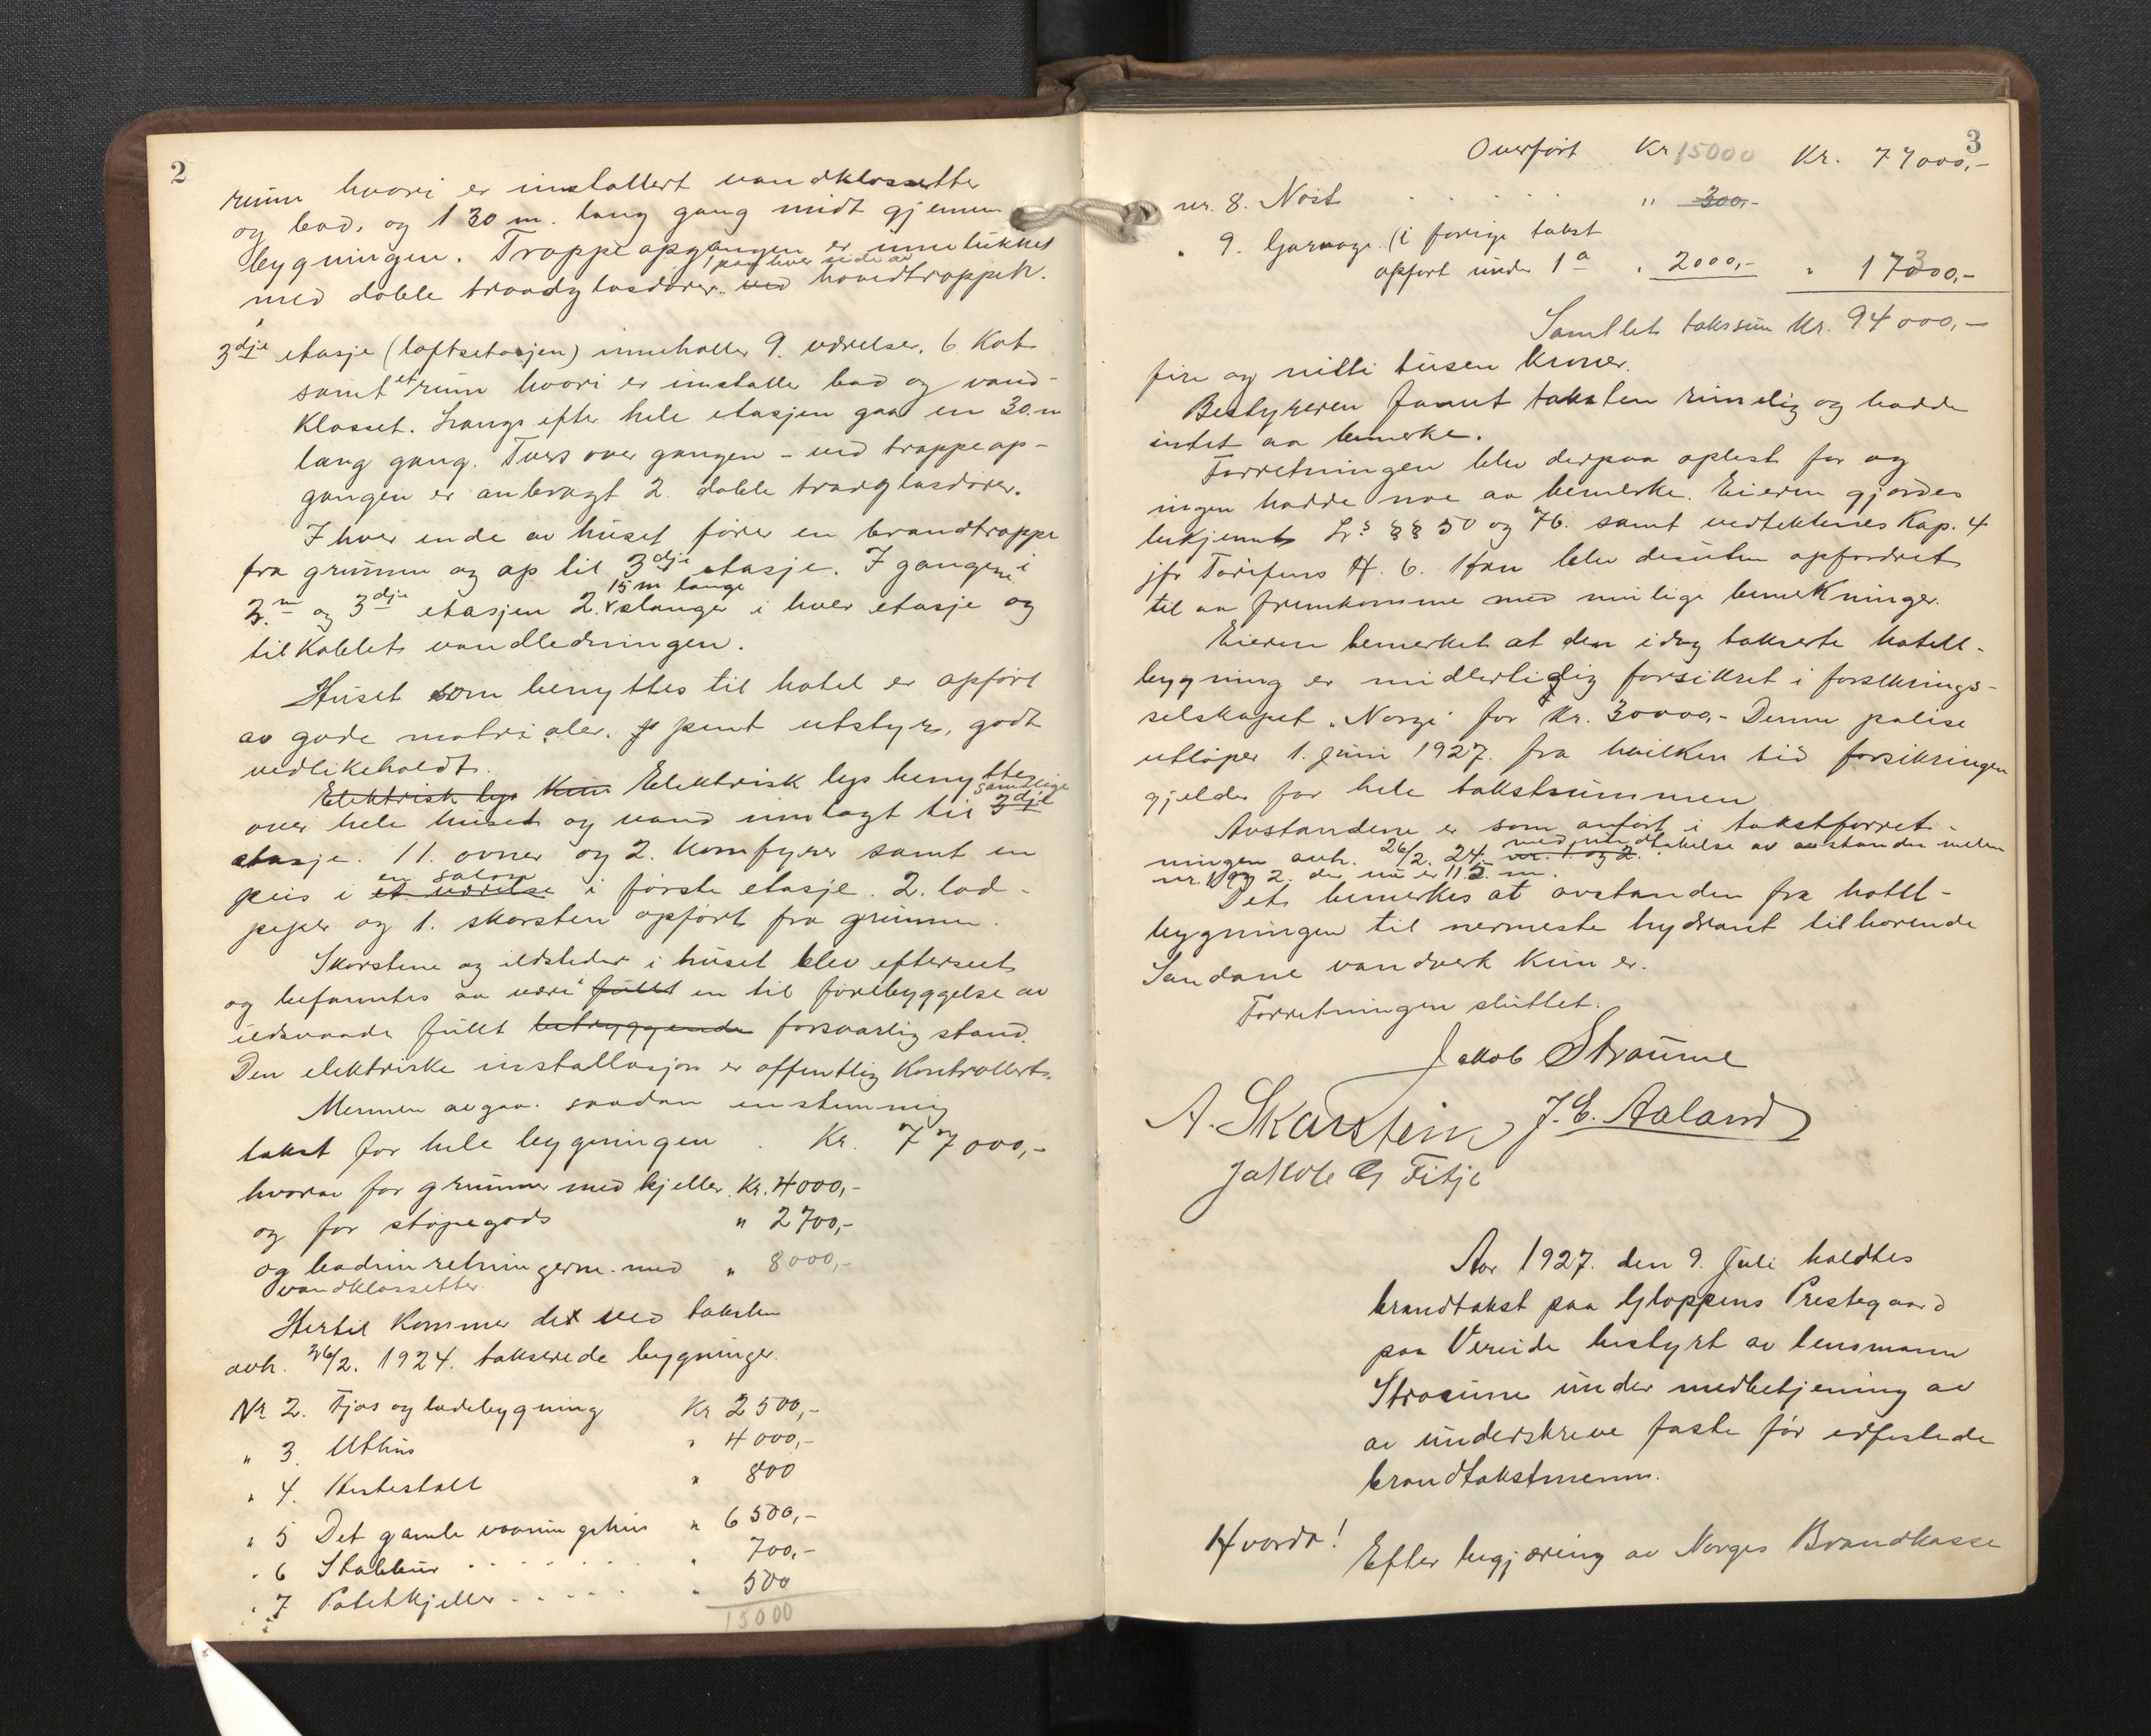 2
rum hvori er installert vandklossetter
og bad, og 1 30 m. lang gang midt gjennem
bygningen. Trappeopgangen er innelukket
1 paa hver side av
med doble traadglasdører. ved hovedtroppen.
3dje etasje (loftsetasjen) inneholler 9. værelser, 6 Kot
samt et rum hvori er installe bad og vand-
Klosset. Langs efter hele etasjen gaar en 30 m
lang gang. Tvers over gangen - ved trappeop-
gangen er anbragt 2. doble traadglasdører.
I hver ende av huset fører en brandtrappe
fra grunnen og op til 3dje etasje. I gangene i
15 m lange
2.n og 3dje etasjen 2. slanger i hver etasje og
tilkoblet vandledningen.
Huset som benyttes til hotel er opført
av gode matrialer. pent utstyr, godt
vedlikeholdt.
Elektrisk lys Kun Elektrisk lys benyttes
samtlige
over hele huset og vand innlagt til 3dje
etasje. 11. ovner og 2. Komfyrer samt en
en salon
peis i et værelse i første etasje. 2. lod-
piper og 1. skorsten opført fra grunnen.
Skorstene og ildsteder i huset blev efterseet
og befanntes aa være fullt en til forebyggelse av
ildsvaade fullt betryggende forsvarlig stand.
Den elektriske installasjon er offentlig Kontrollert.
Mennen avgav saadan enstemmig
takst for hele bygningen . Kr. 77000,-
hvorav for grunnmur med kjeller Kr. 4000,-
og for støpegods " 2700,-
og badinnretningerne med " 8000,-
vandklossetter.
Hertil Kommer det ved taksten
avh. 26/2. 1924. takserede bygninger.
Nr 2. Fjøs og ladebygning Kr 2500,-
" 3. Uthus " 4000,-
" 4. Hestestall " 800
" 5 Det gamle vaaningshus " 6500,-
" 6 Stabbur . . . . . . " 700,-
" 7 Potetkjeller . . . . . " 500
15000
3
Overført Kr 15000 Kr. 77000,-
nr. 8. Nøst . . . . . " 300,-
" 9. Garage (i forrige takst
opført under 1a " 2000,- " 17000,-
Samllet takssum Kr. 94000,-
fire og nitti tusen kroner.
Bestyreren fannt taksten rimelig og hadde
intet aa bemerke.
Forretningen blev derpaa oplest for og
ingen hadde noe aa bemerke. Eieren gjordes
bekjennt L.s §§ 50 og 76. samt vedtektenes Kap. 4
jfr Tariffens H. 6. Han blev desuten opfordret
til aa fremkomme med mulige bemerkninger.
Eieren bemerket at den idag takserte hotell-
bygning er midlertidig forsikret i forsikrings-
selskapet "Norge" for Kr. 30000,- Denne polise
utløper 1. juni 1927. fra hvilken tid forsikringen
gjelder for hele takstsummen
Avstandene er som anført i takstforret-
ningen avh. 26/2. 24. med undtakelse av avstanden mellem
nr. 1 og 2.
nr. 1 og 2. der nu er 112 m.
Det bemerkes at avstanden fra hotel-
bygningen til nermeste hydrant tilhørende
Sandane vandverk kun er.
Forretningen sluttet.
Jakob Straume
A. Skarstein J. E. Aaland
Jakob G Fitje
Aar 1927. den 9. Juli holdtes
brandtakst paa Gloppens Prestegaard
paa Vereide bestyrt av lensmann
Straume under medbetjening av
av underskreve faste før edfestede
brandtakstmenn.
Hvorda! Efter begjæring av Norges Brandkasse